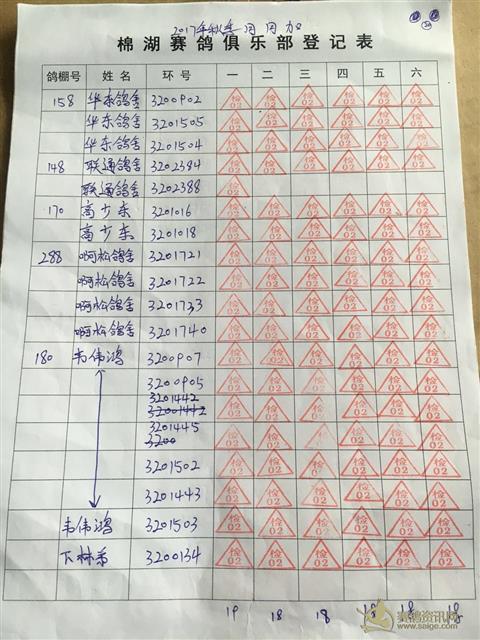 2017年秋季 周周加
棉湖赛鸽俱乐部登记表
鸽棚号 姓名 环号 一 二 三 四 五 六
158 华东鸽舍 3200902 检02 检02 检02 检02 检02 检02
华东鸽舍 3201505 检02 检02 检02 检02 检02 检02
华东鸽舍 3201504 检02 检02 检02 检02 检02 检02
148 联通鸽舍 3202384 检02 检02 检02 检02 检02 检02
联通鸽舍 3202388 检02
170 高少东 3201016 检02 检02 检02 检02 检02 检02
高少东 3201018 检02 检02 检02 检02 检02 检02
288 啊松鸽舍 3201721 检02 检02 检02 检02 检02 检02
啊松鸽舍 3201722 检02 检02 检02 检02 检02 检02
啊松鸽舍 3201733 检02 检02 检02 检02 检02 检02
啊松鸽舍 3201740 检02 检02 检02 检02 检02 检02
180 韦伟鸿 3200907 检02 检02 检02 检02 检02 检02
3200905 检02 检02 检02 检02 检02 检02
3201442 检02 检02 检02 检02 检02 检02
3201445
3200 检02 检02 检02 检02 检02 检02
3201502 检02 检02 检02 检02 检02 检02
3201443 检02 检02 检02 检02 检02 检02
韦伟鸿 3201503 检02 检02 检02 检02 检02 检02
下林弟 3200134 检02 检02 检02 检02 检02 检02
19 18 18 18 18 18
赛鸽资讯网
www.saige.com